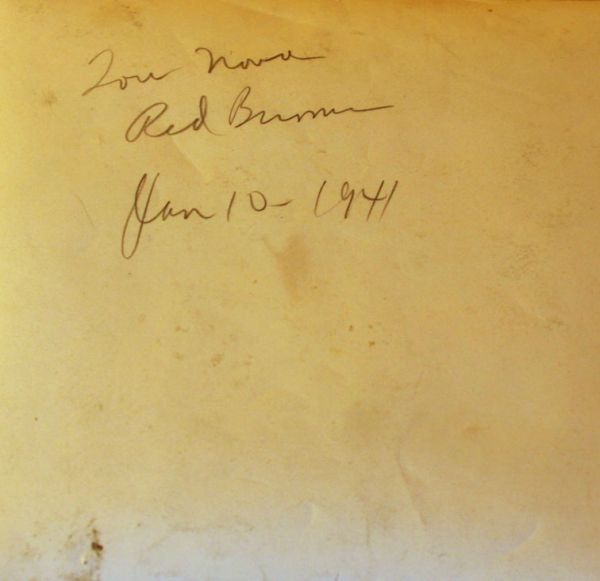 Lou Nova
Red Burman
Jan 10 - 1941